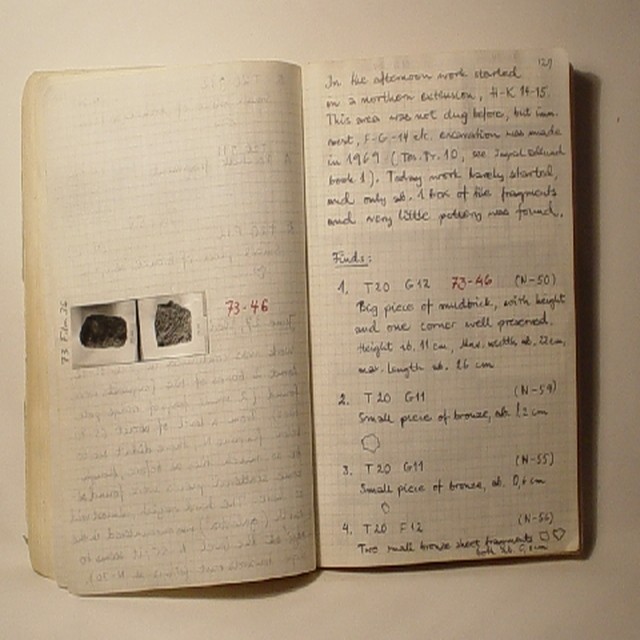 73 Film 36
73-46
129
In the afternoon work started
on a northern extension, H-K 14-15.
This area was not dug before, but imm.
west, F-G-14 etc. excavation was made
in 1969 (Tos. Pr. 10, see
book 1). Today work barely started,
and only ab. 1 box of tile fragments
and very little pottery was found.
Finds:
1. T20 G12 73-46 (N-50)
Big piece of mudbrick, with height
and one corner well preserved.
Height ab. 11 cm, Max. width ab. 22 cm,
max. length ab. 26 cm
2. T20 G11 (N-54)
Small piece of bronze, ab. 1,2 cm
3. T20 G11 (N-55)
Small piece of bronze, ab. 0,6 cm
4. T20 F12 (N-56)
Two small bronze sheet fragments
both ab. 0,8 cm